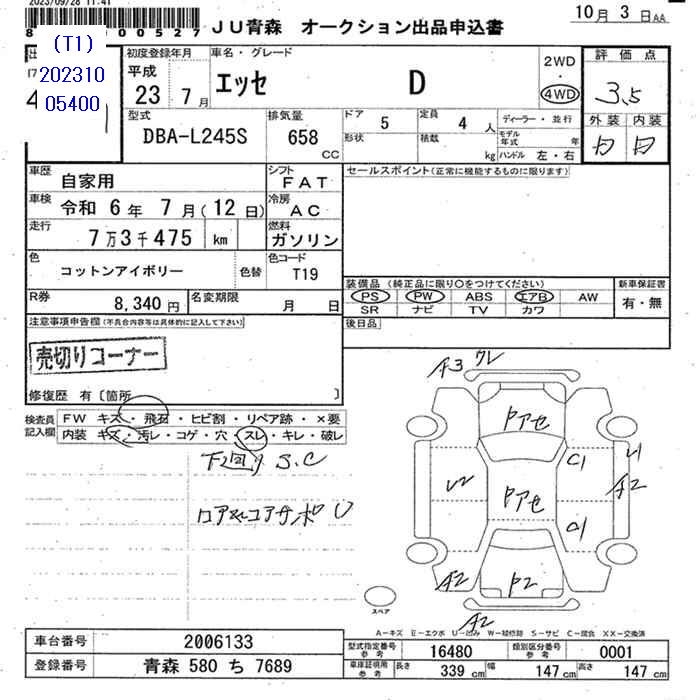 2023/09/28 11:41
JU青森 オークション出品申込書
10月 3日AA
(T1)
202310
05400
初度登録年月
平成
23 7月
車名・グレード
エッセ D
2WD
・
4WD
評価点
3.5
外装 内装
型式
DBA-L245S
排気量
658
CC
ドア
5
定員
4 人
形状
積載
kg
ディーラー・並行
モデル年式 年
ハンドル 左・右
車歴
自家用
シフト
FAT
車検
令和 6年 7月(12日)
冷房
AC
走行
7万3千475 km
燃料
ガソリン
色
コットンアイボリー
色替
色コード
T19
R券
8,340円
名変期限
月 日
セールスポイント(正常に機能するものに限ります)
装備品(純正品に限り○をつけてください)
PS PW ABS エアB AW
SR ナビ TV カワ
新車保証書
有・無
後日品
注意事項申告欄(不具合内容等は具体的に記入して下さい)
売切りコーナー
修復歴 有〔箇所 〕
検査員
記入欄
FW キズ・飛石・ヒビ割・リペア跡・×要
内装 キズ・汚レ・コゲ・穴・スレ・キレ・破レ
下回り S.C
A3 ワレ
Pアセ
C1
U1
A2
U2
Pアセ
C1
A2
P2
A2
スペア
A-キズ E-エクボ U-凹み W-補修跡 S-サビ C-腐食 XX-交換済
車台番号
2006133
登録番号
青森 580 ち 7689
型式指定番号
参考
16480
類別区分番号
参考
0001
車庫証明用
参考
長さ
339 cm
幅
147 cm
高さ
147 cm